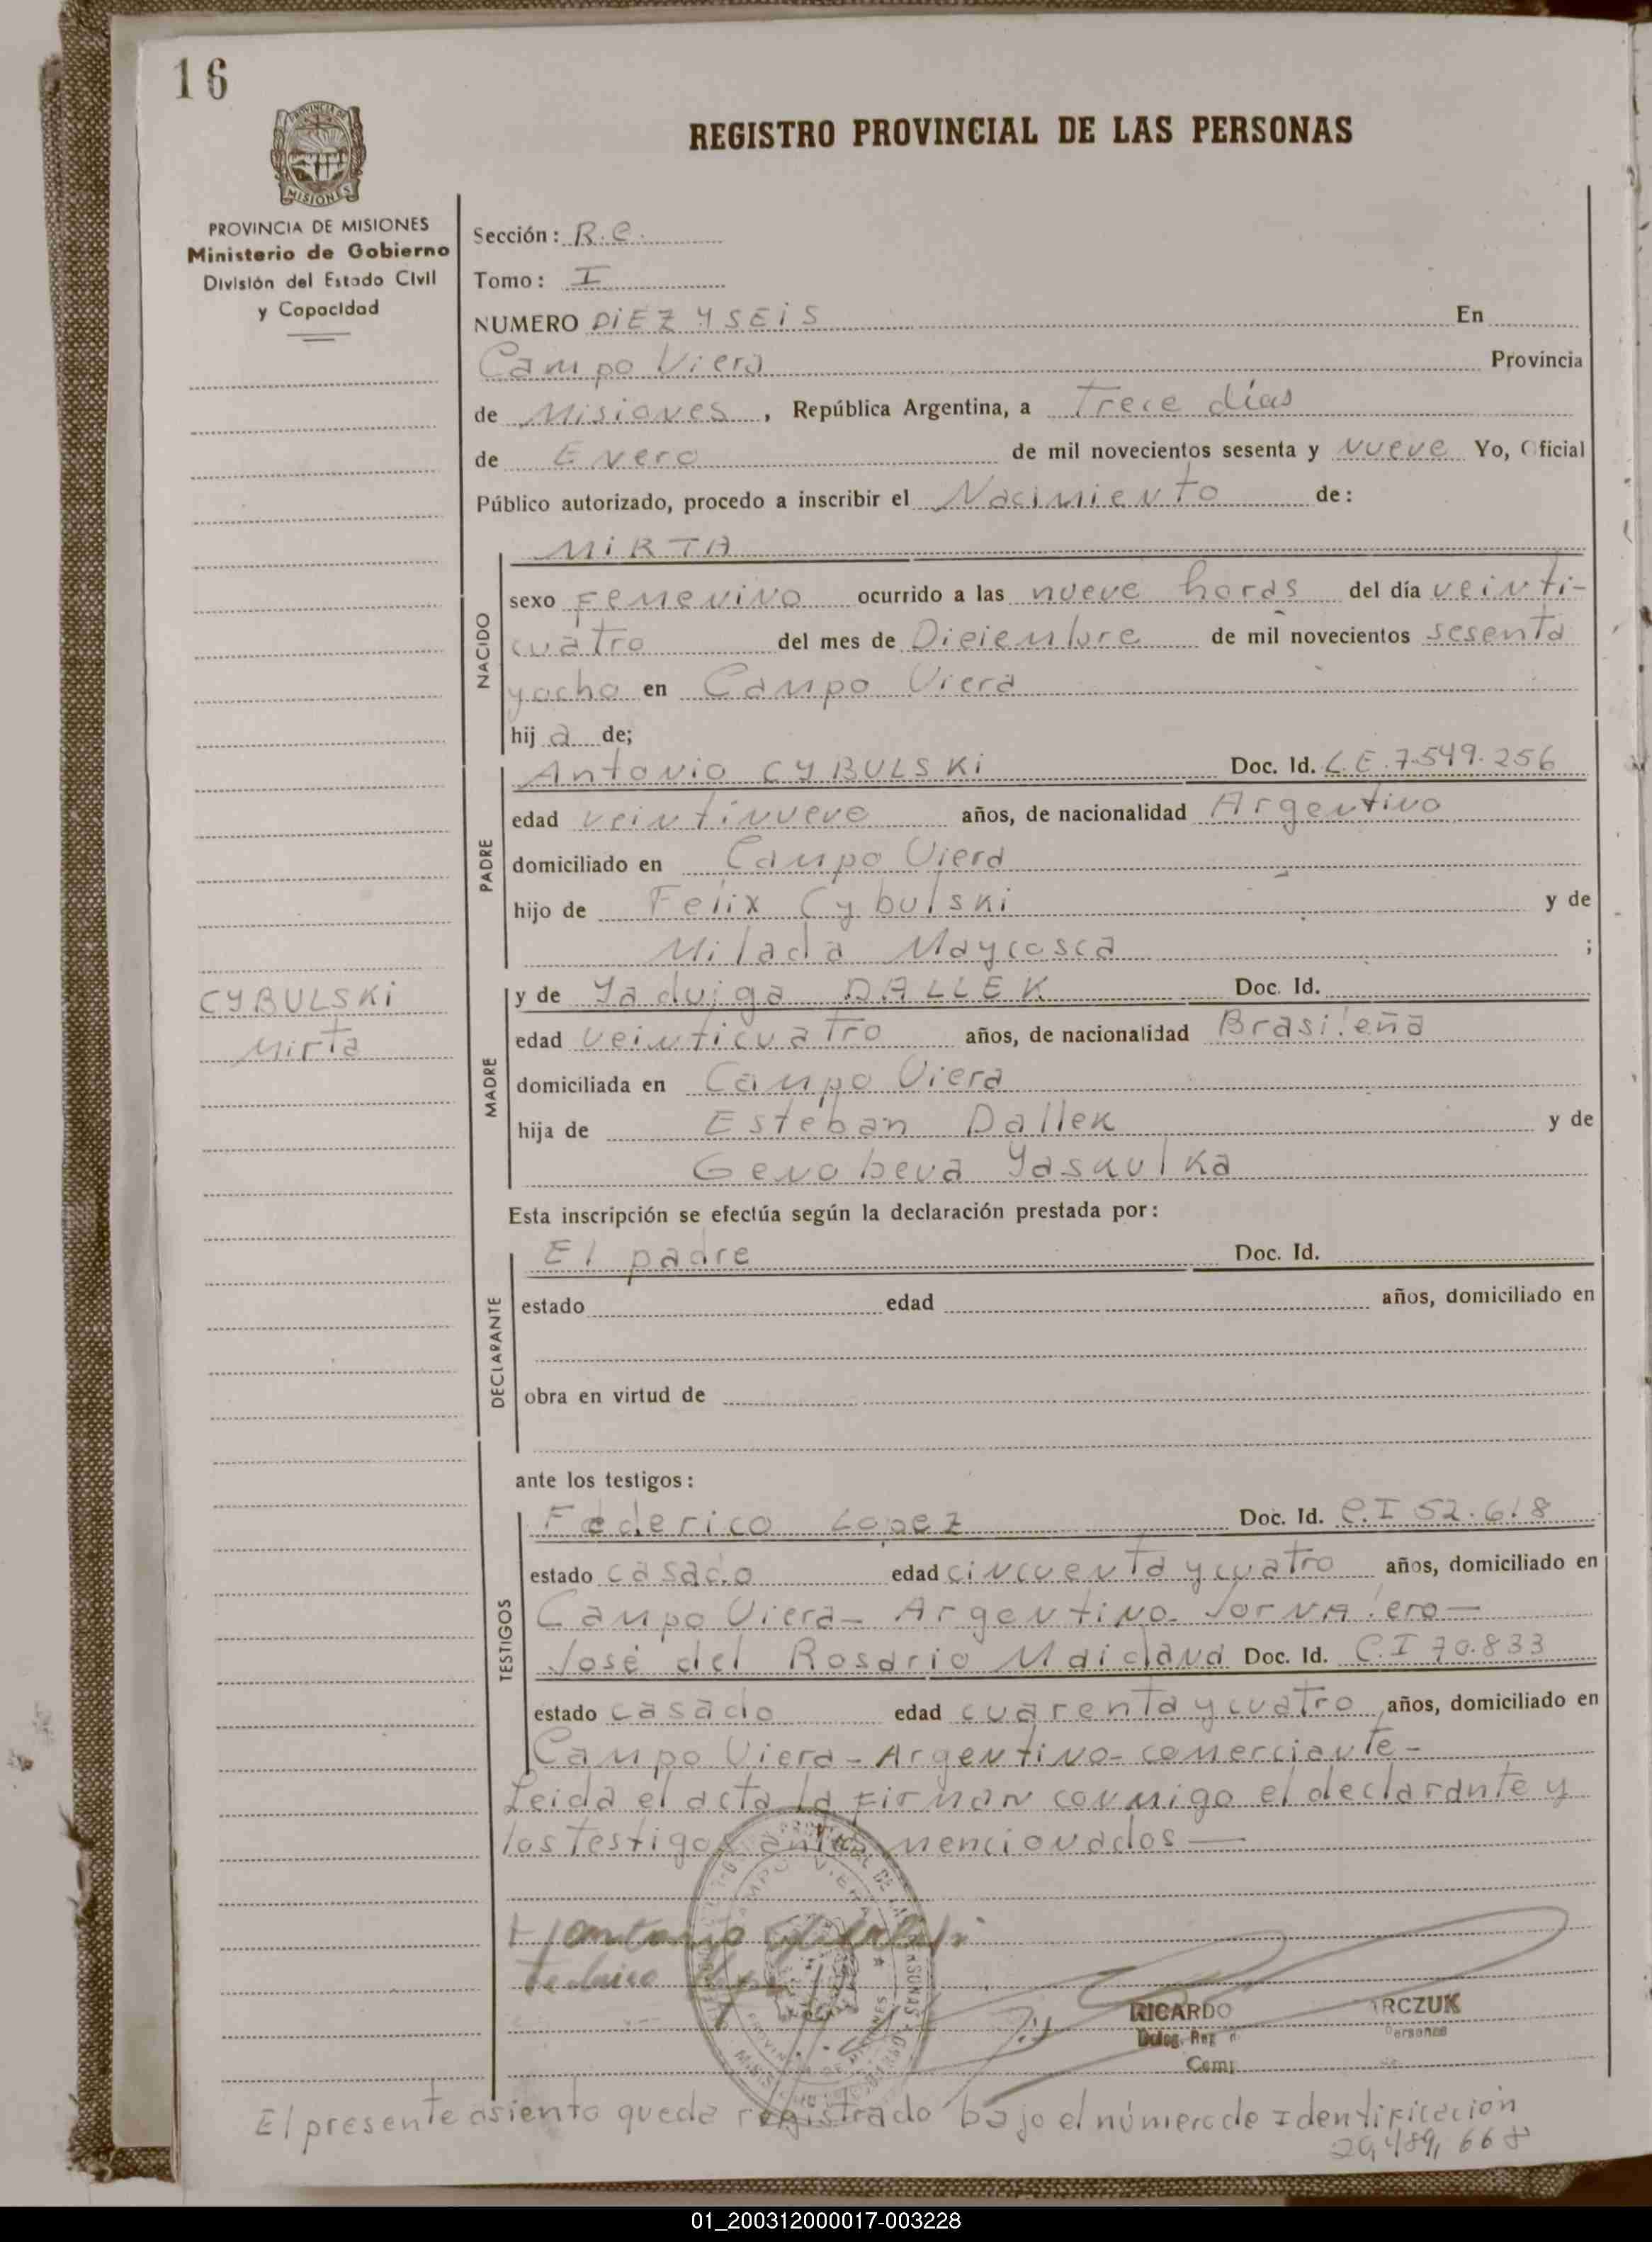 16
MISIONES
PROVINCIA DE MISIONES
Ministerio de Gobierno
División del Estado Civil
y Capacidad
REGISTRO PROVINCIAL DE LAS PERSONAS
Sección: R.C.
Tomo: I
NUMERO DIEZ Y SEIS En
Campo Viera Provincia
de Misiones, República Argentina, a Trece días
de Enero de mil novecientos sesenta y nueve Yo, Oficial
Público autorizado, procedo a inscribir el Nacimiento de:
NACIDO
MIRTA
sexo Femenino ocurrido a las nueve horas del día veinti-
cuatro del mes de Diciembre de mil novecientos sesenta
y ocho en Campo Viera
hija de;
PADRE
Antonio CYBULSKI Doc. Id. L.E. 7.549.256
edad veintinueve años, de nacionalidad Argentino
domiciliado en Campo Viera
hijo de Felix Cybulski y de
Milada Maycosca ;
CYBULSKI
Mirta
MADRE
y de Yaduiga DALLEK Doc. Id.
edad veinticuatro años, de nacionalidad Brasileña
domiciliada en Campo Viera
hija de Esteban Dallek y de
Genobeva Yaskulka
Esta inscripción se efectúa según la declaración prestada por:
DECLARANTE
El padre Doc. Id.
estado edad años, domiciliado en
obra en virtud de
ante los testigos:
TESTIGOS
Federico Lopez Doc. Id. C.I 52.618
estado casado edad cincuenta y cuatro años, domiciliado en
Campo Viera - Argentino - Jornalero -
José del Rosario Maidana Doc. Id. C.I 70.833
estado casado edad cuarenta y cuatro años, domiciliado en
Campo Viera - Argentino - comerciante -
Leida el acta la firman conmigo el declarante y
los testigos antes mencionados -
Antonio Cybulski
RICARDO RCZUK
El presente asiento queda registrado bajo el número de Identificación
20,489,668
01_200312000017-003228